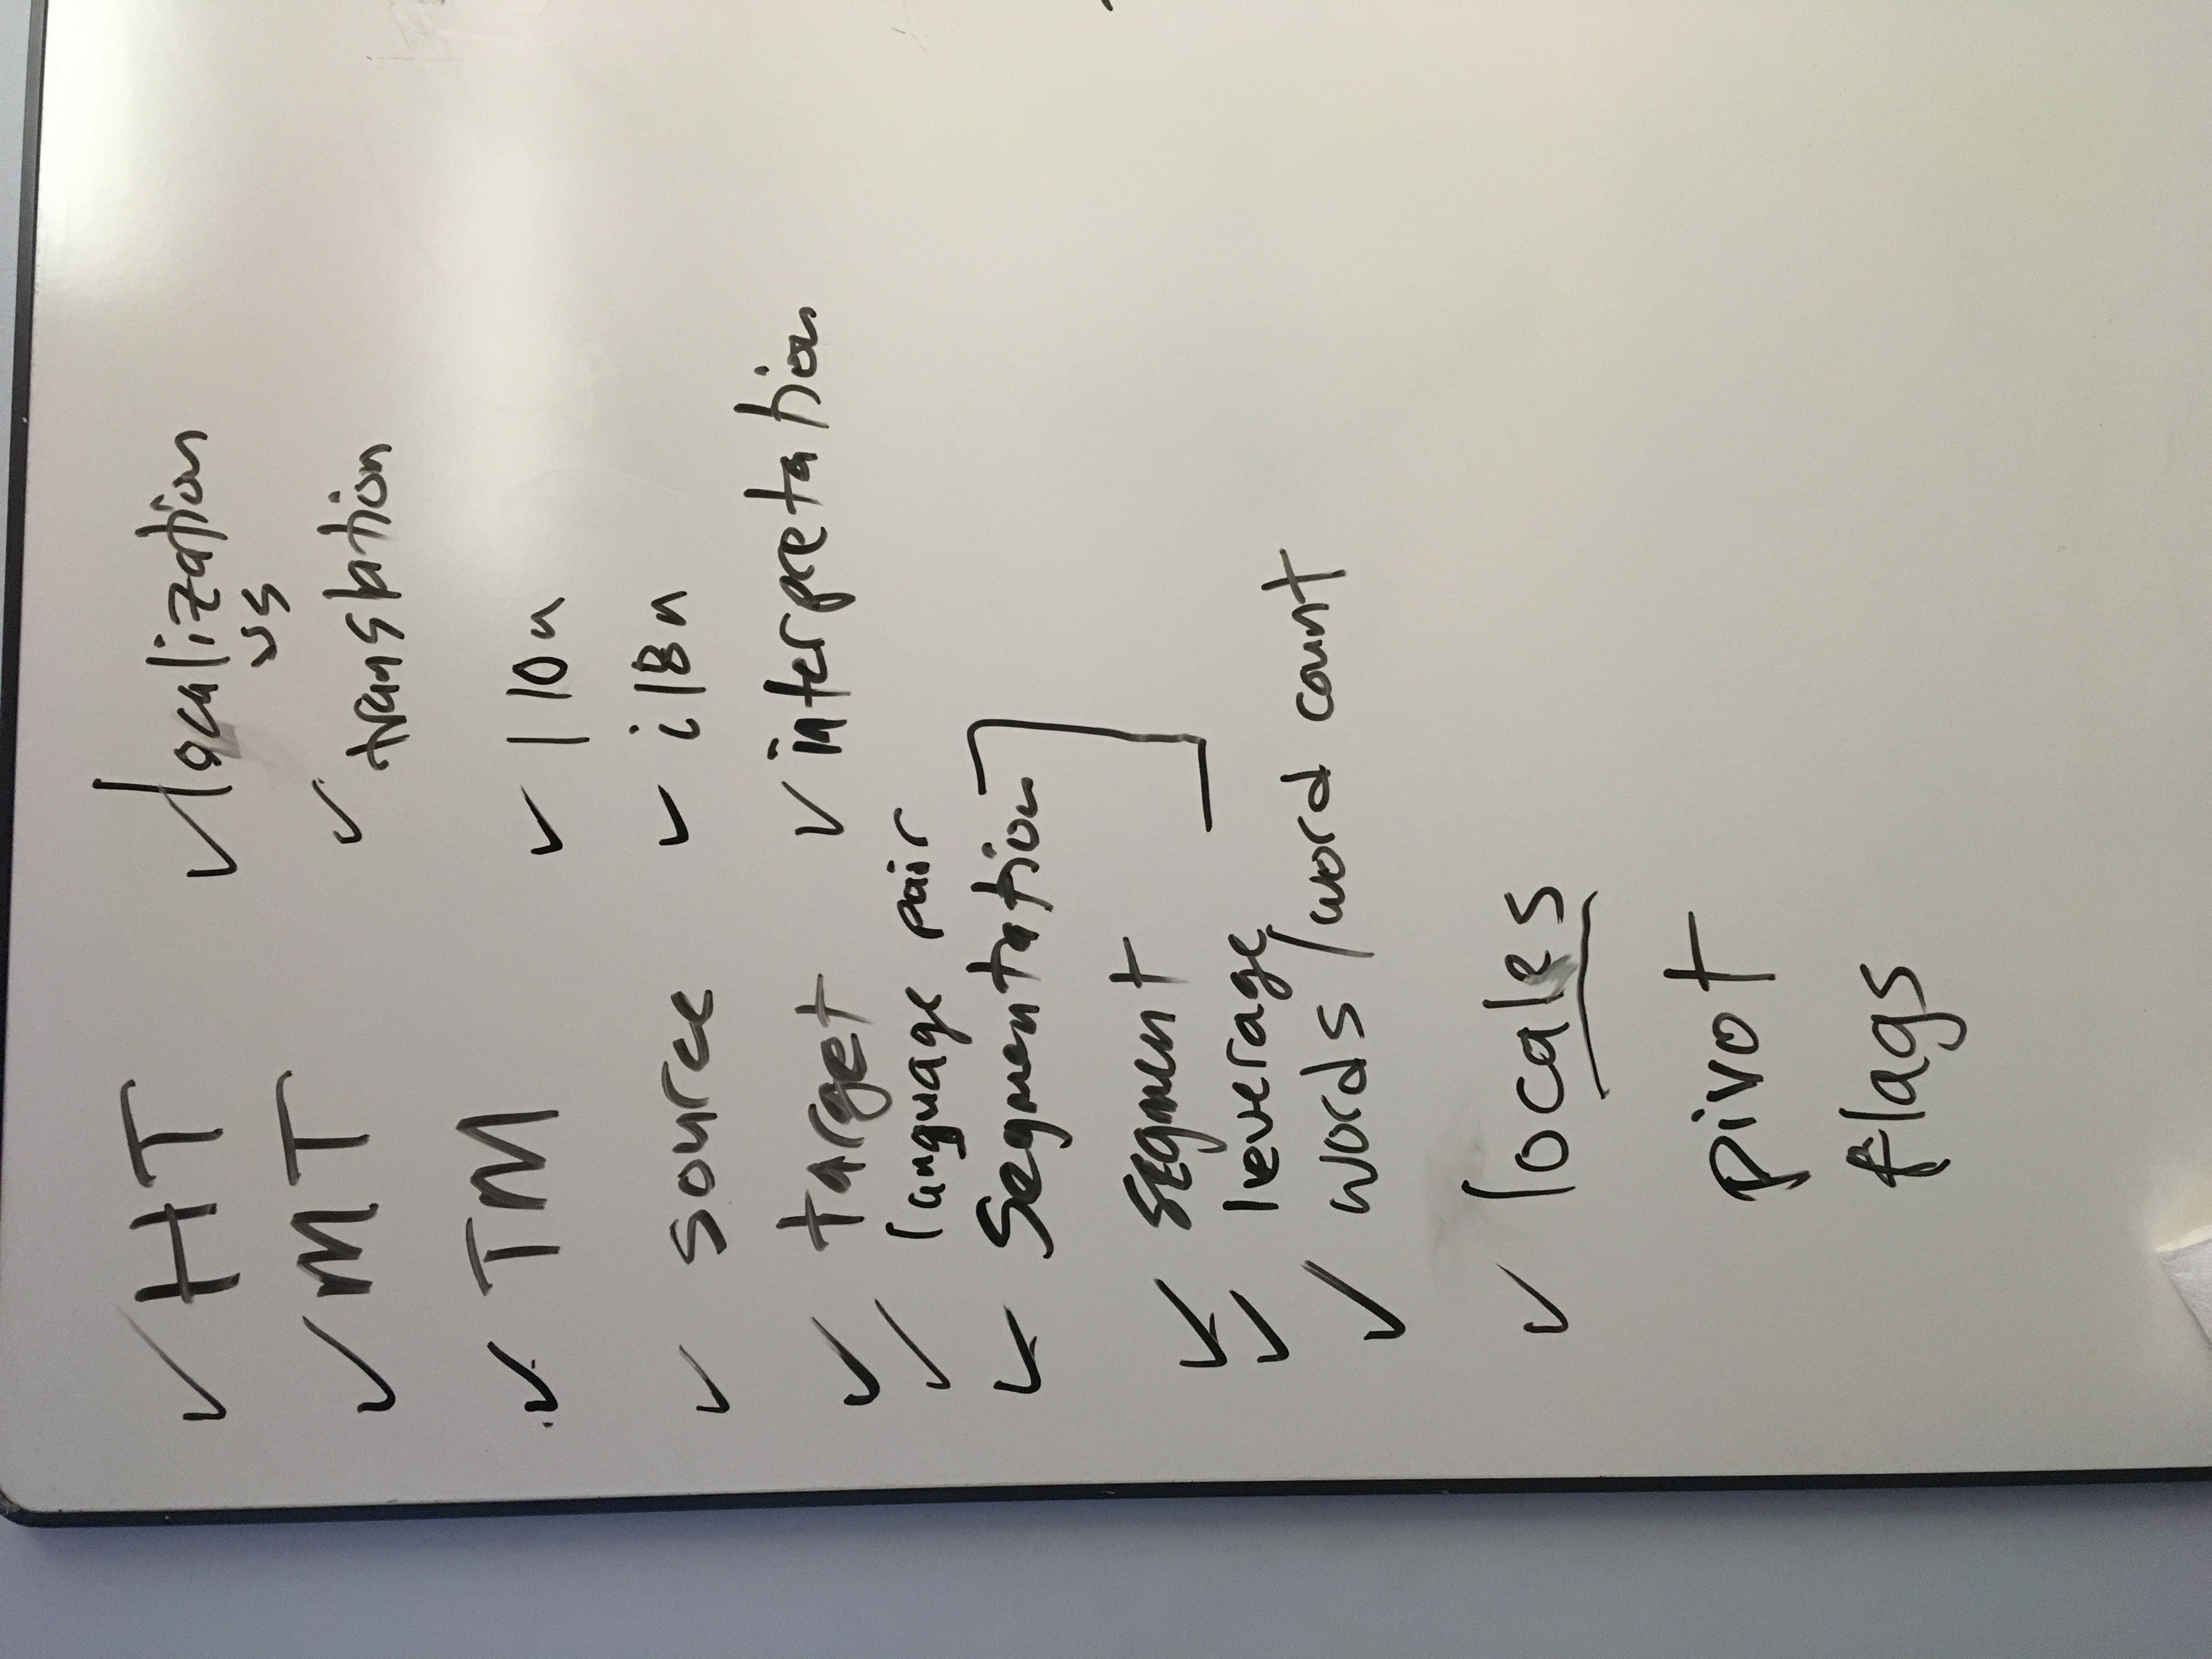 ✓ HT
✓ MT
✓ TM
✓ source
✓ target
✓ language pair
✓ Segmentation
✓ segment
✓ leverage
✓ words/word count
✓ locales
pivot
flags
✓ localization
vs
✓ translation
✓ l10n
✓ i18n
✓ interpretation